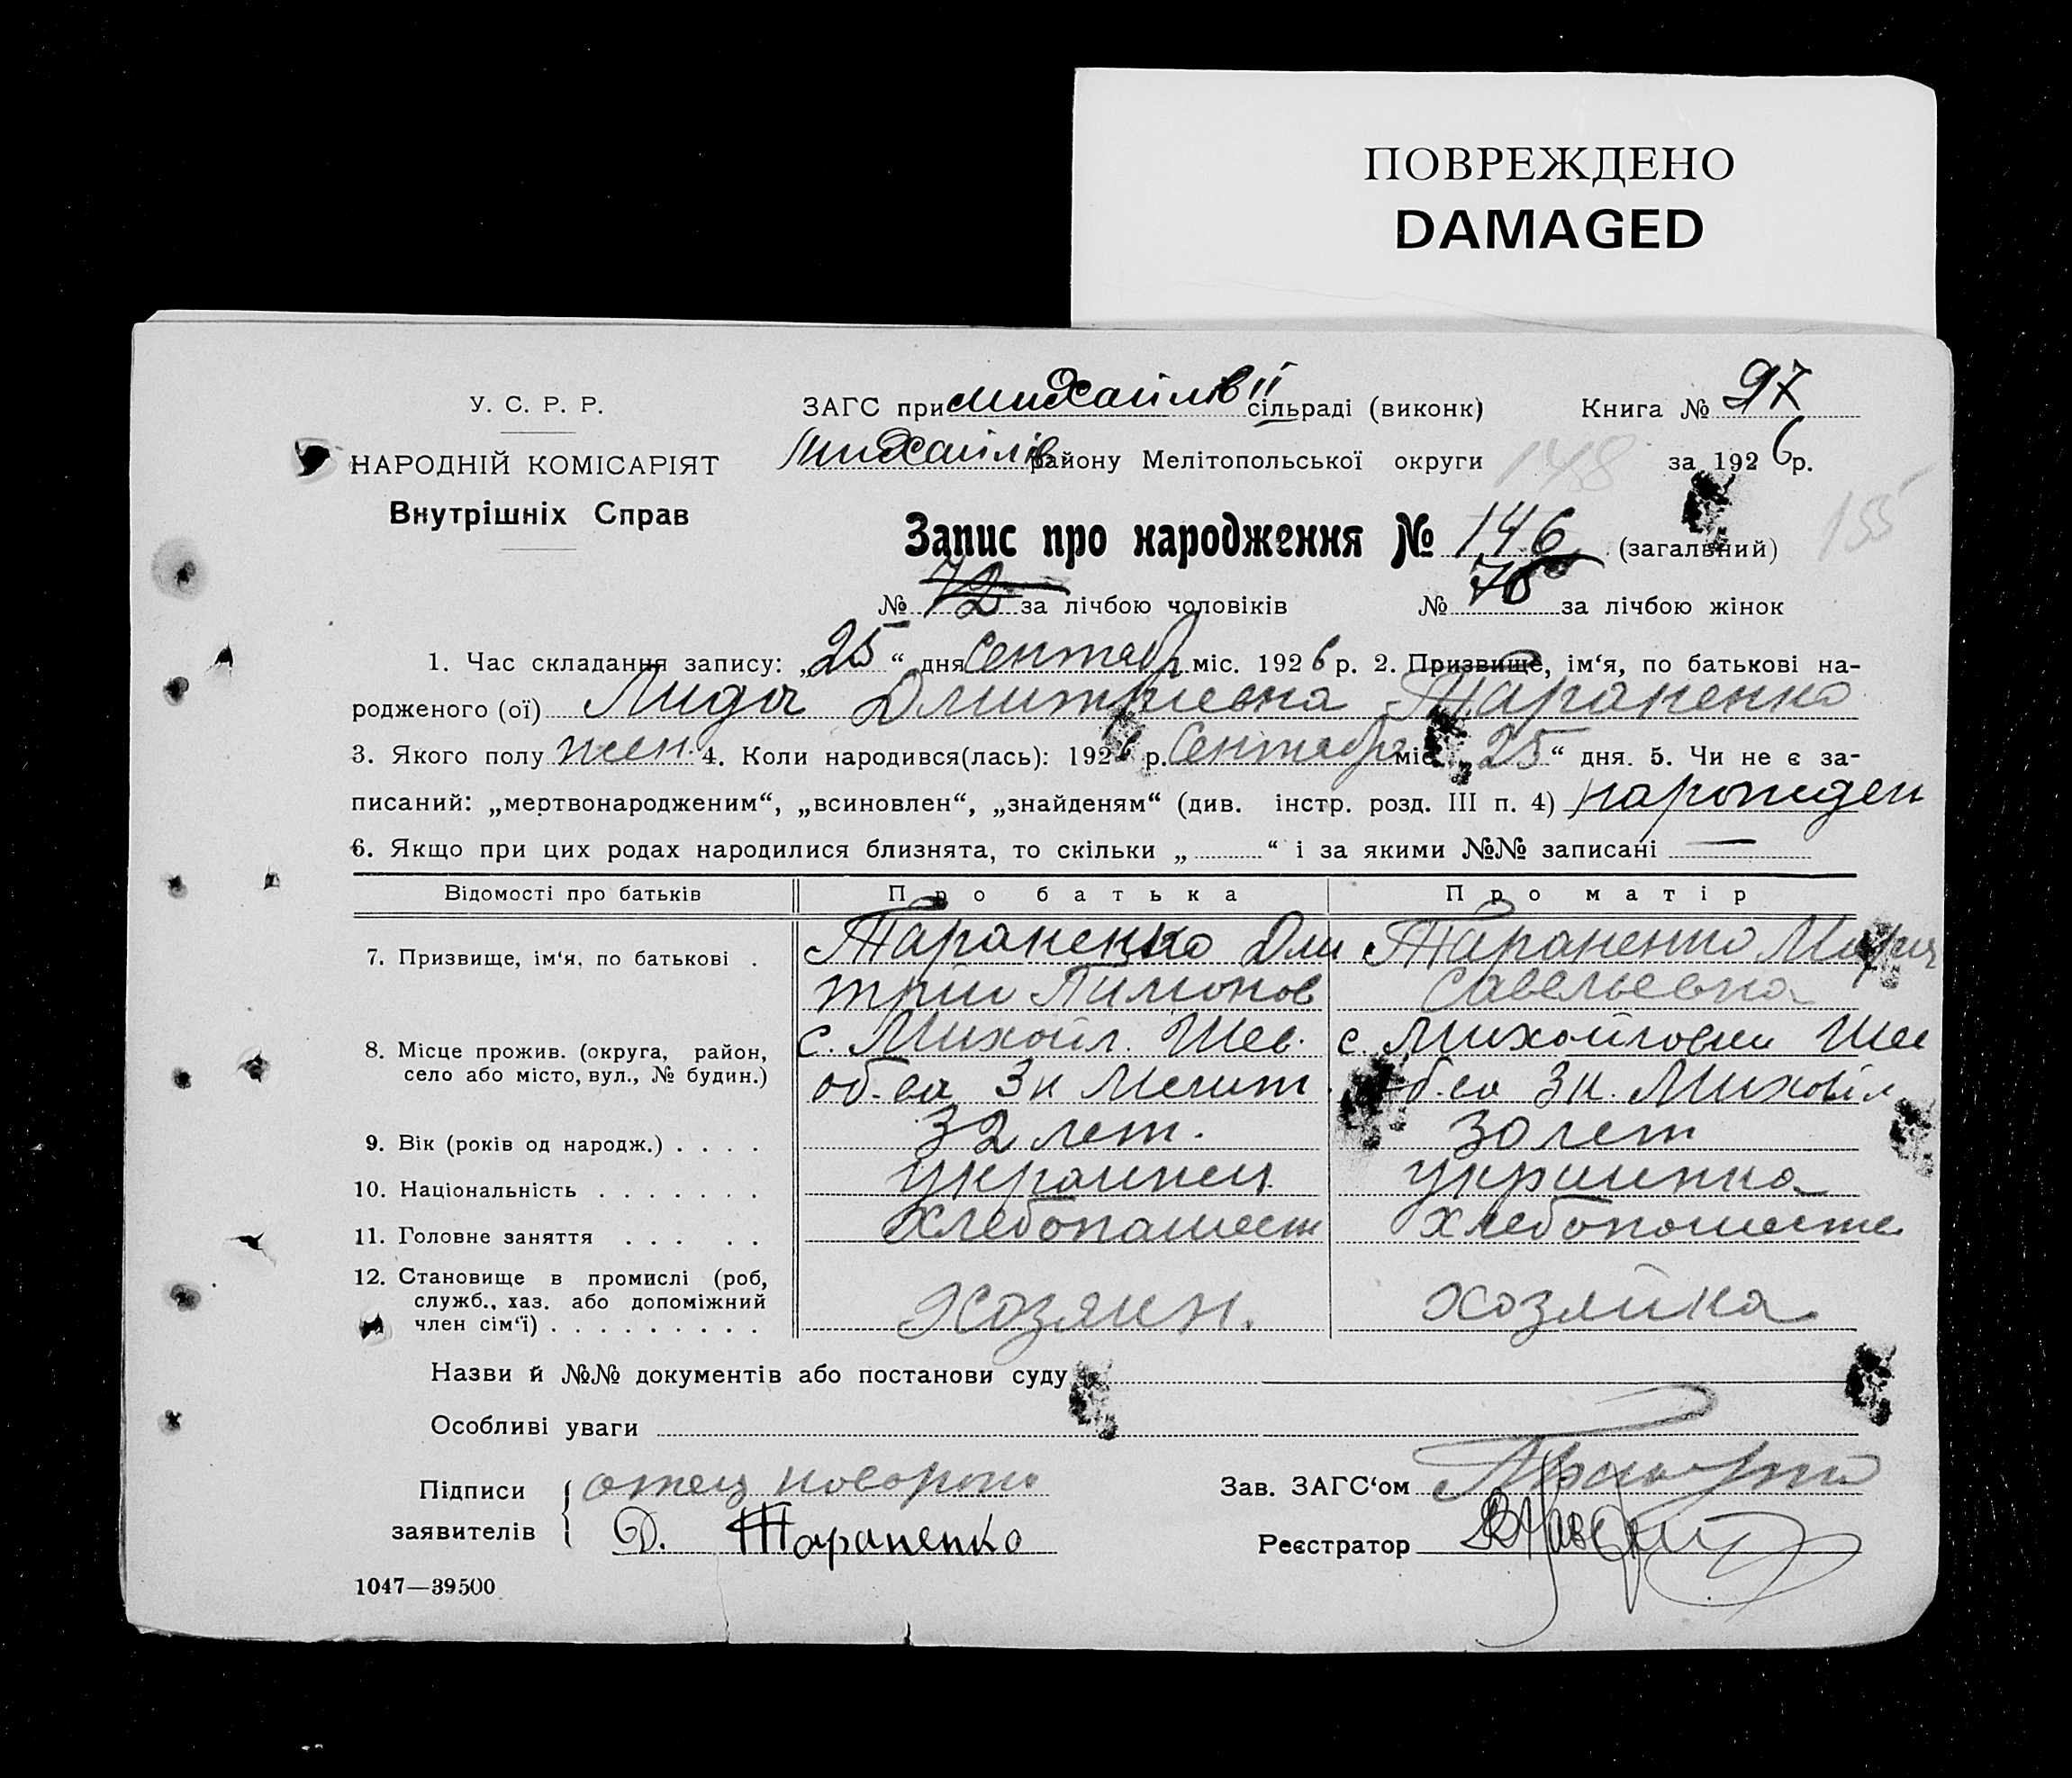 ПОВРЕЖДЕНО
DAMAGED
У. С. Р. Р.
НАРОДНІЙ КОМІСАРІЯТ
Внутрішніх Справ
ЗАГС при Михайлів II сільраді (виконк) Книга № 97
Михайлів району Мелітопольської округи 148 за 1926 р.
155
Запис про народження № 146 (загальний)
№ 72 за лічбою чоловіків № за лічбою жінок
1. Час складання запису: „25“ дня сентябр міс. 1926 р. 2. Призвище, ім‘я, по батькові на-
родженого (ої) Лида Дмитриевна Тараненко
3. Якого полу жен. 4. Коли народився(лась): 1926 р. Сентября міс. „25“ дня. 5. Чи не є за-
писаний: „мертвонародженим“, „всиновлен“, „знайденям“ (див. інстр. розд. III п. 4) нарожден
6. Якщо при цих родах народилися близнята, то скільки „ “ і за якими №№ записані —
Відомості про батьків Про батька Про матір
7. Призвище, ім‘я, по батькові . Тараненко Дми Тараненко Мария
трий Пимонов Савельевна
8. Місце прожив. (округа, район, с. Михайл. Шев. с. Михайловки Шев
село або місто, вул., № будин.) об-ва 3 н Мелит. об-ва 3 н. Михайл
9. Вік (років од народж.) . . . . 32 лет. 30 лет
10. Національність . . . . . . . украинец украинка
11. Головне заняття . . . . . хлебопашест хлебопашеств
12. Становище в промислі (роб,
служб., хаз. або допоміжний Хозяин. хозяйка
член сім‘ї) . . . . . . . . .
Назви й №№ документів або постанови суду
Особливі уваги
Підписи отец новорож Зав. ЗАГС‘ом
заявителів Д. Тараненко Реєстратор
1047—39500